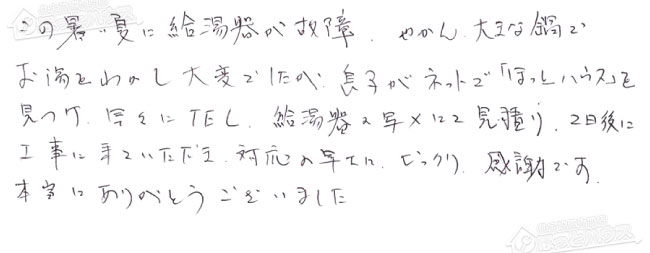 この暑い夏に給湯器が故障、やかん、大きな鍋で
お湯をわかし大変でしたが、息子がネットで「ほっとハウス」を
見つけ、早々にTEL、給湯器の写メにて見積り、2日後に
工事に来ていただき、対応の早さに、びっくり、感謝です。
本当にありがとうございました